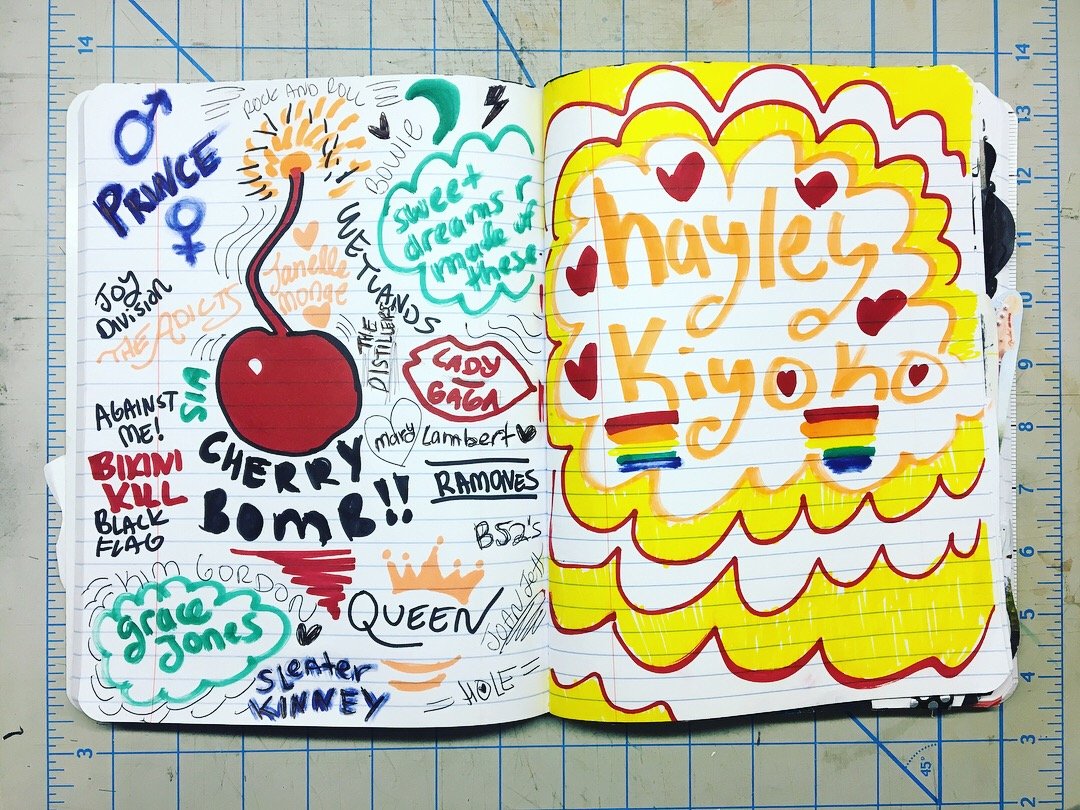 ROCK AND ROLL
PRINCE
BOWIE
WETLANDS
sweet
dreams r
made of
these
Janelle
monge
JOY
Division
THE ADICTS
THE
DISTILLERS
SIA
LADY
GAGA
AGAINST
ME!
BIKINI
KILL
BLACK
FLAG
CHERRY
BOMB!!
mary Lambert
RAMONES
B52's
KIM GORDON
grace
Jones
QUEEN
Joan Jett
Sleater
KINNEY
HOLE
hayley
Kiyoko
14
3
14
13
12
11
10
9
8
7
6
5
4
3
2
45°